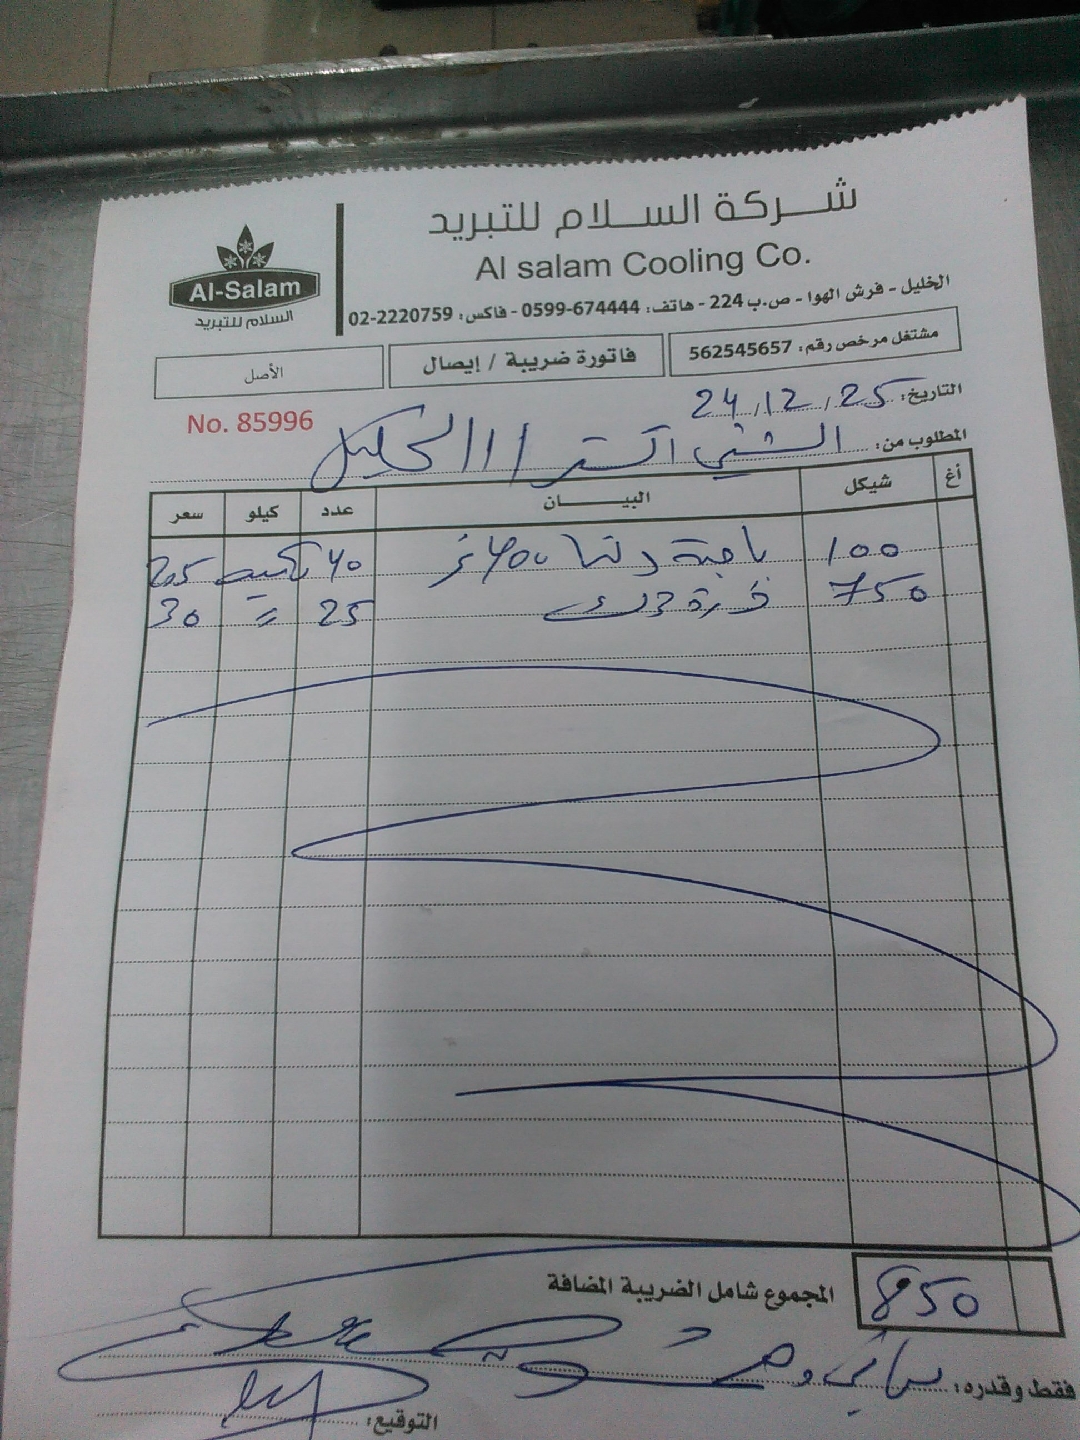 شركة السلام للتبريد
Al salam Cooling Co.
Al-Salam
السلام للتبريد
الخليل - فرش الهوا - ص.ب 224 - هاتف: 0599-674444 - فاكس: 02-2220759
مشتغل مرخص رقم: 562545657
فاتورة ضريبة / إيصال
الأصل
التاريخ: 24/12/25
No. 85996
المطلوب من: الشني اكسترا / الخليل
أغ شيكل البيـــــان عدد كيلو سعر
100 دلتا 400 غ 40 2.5
750 ذرة 25 = 30
المجموع شامل الضريبة المضافة 850
فقط وقدره:
التوقيع: